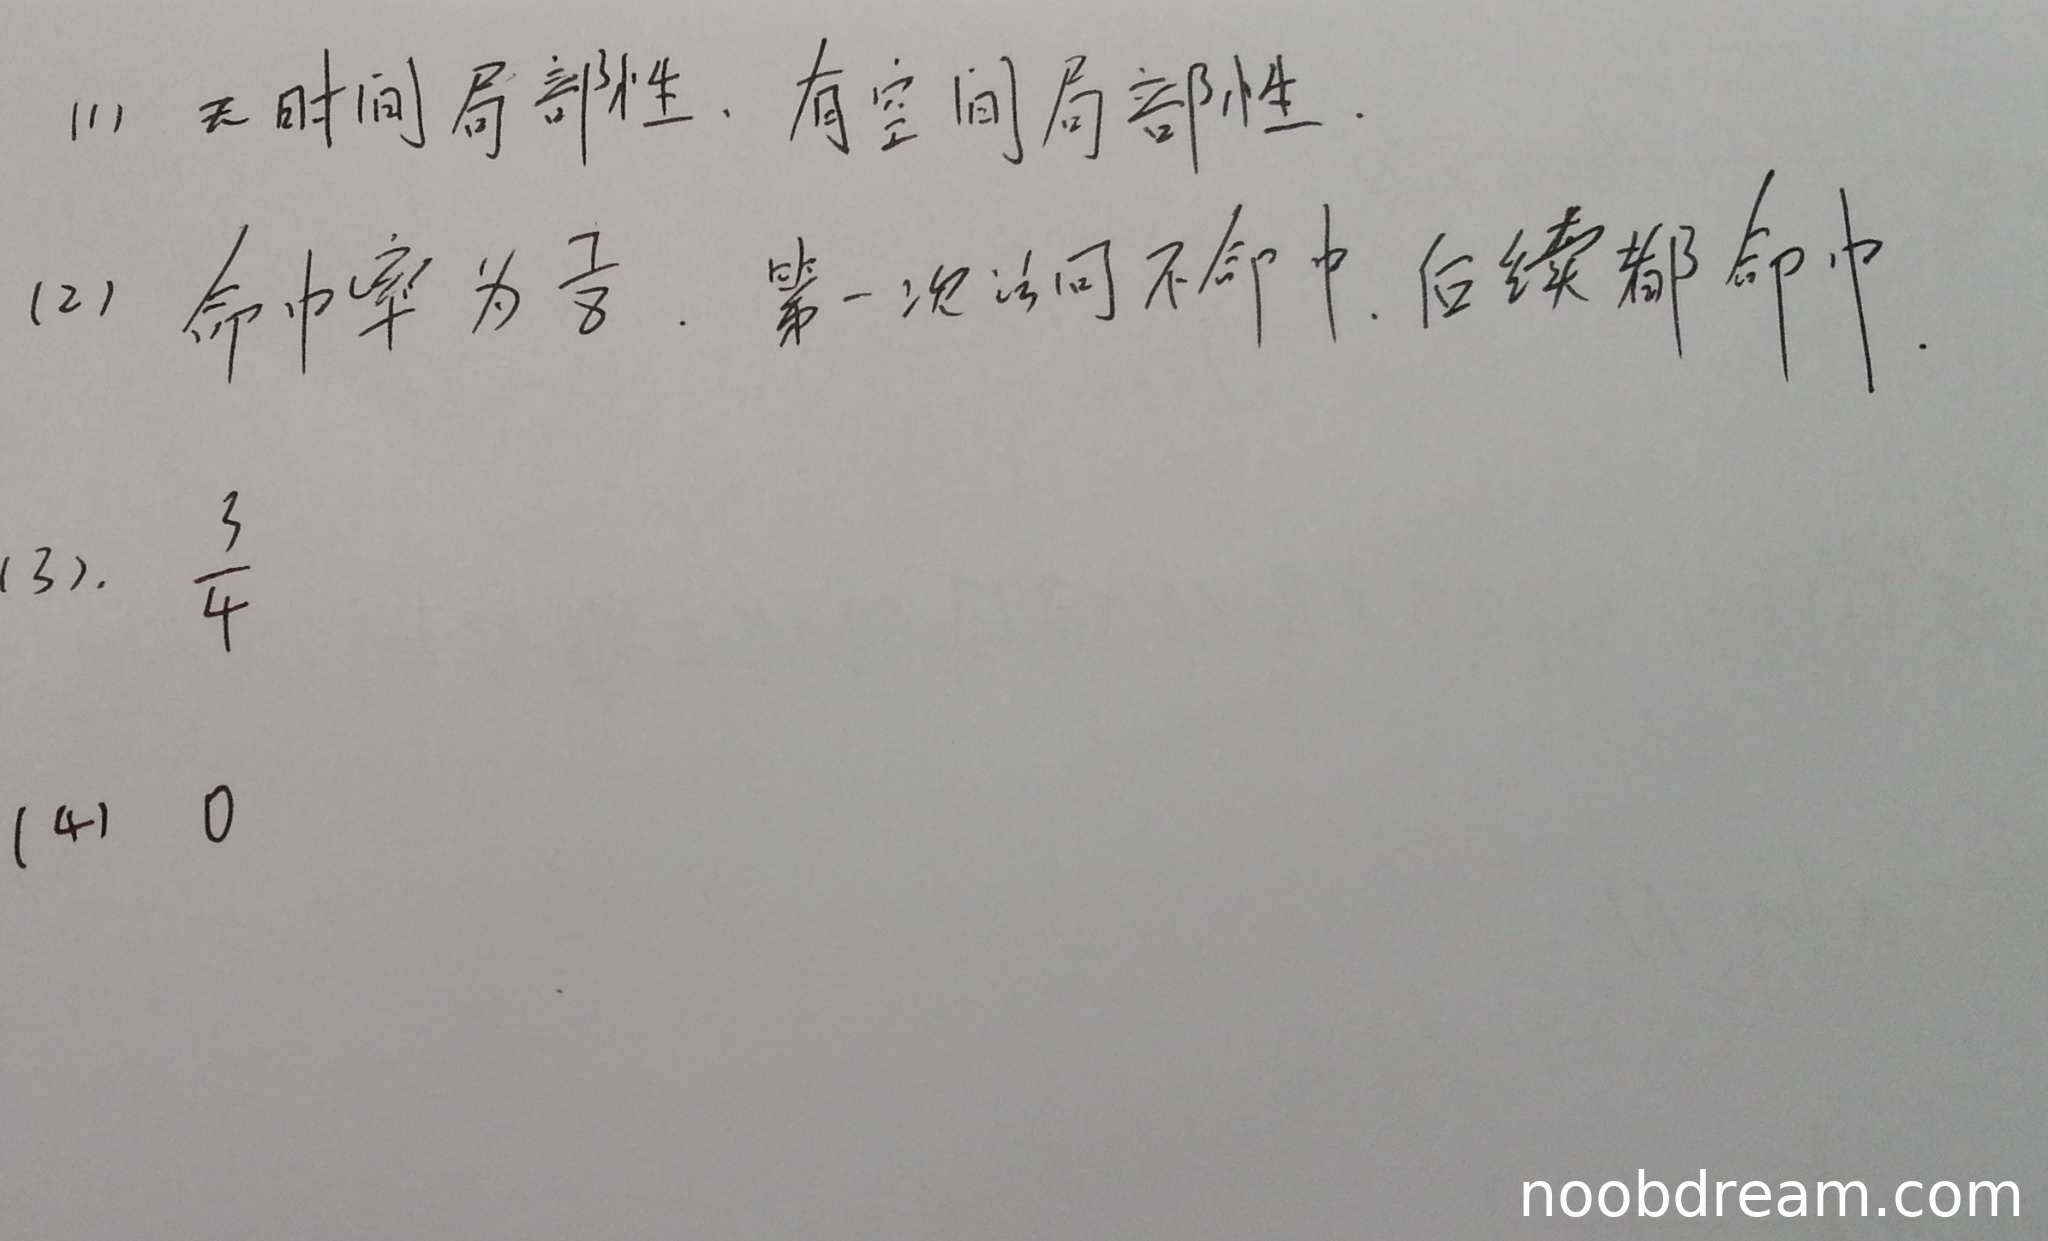 (1) 无时间局部性. 有空间局部性.
(2) 命中率为 7/8. 第一次访问不命中. 后续都命中.
(3). 3/4
(4) 0
noobdream.com